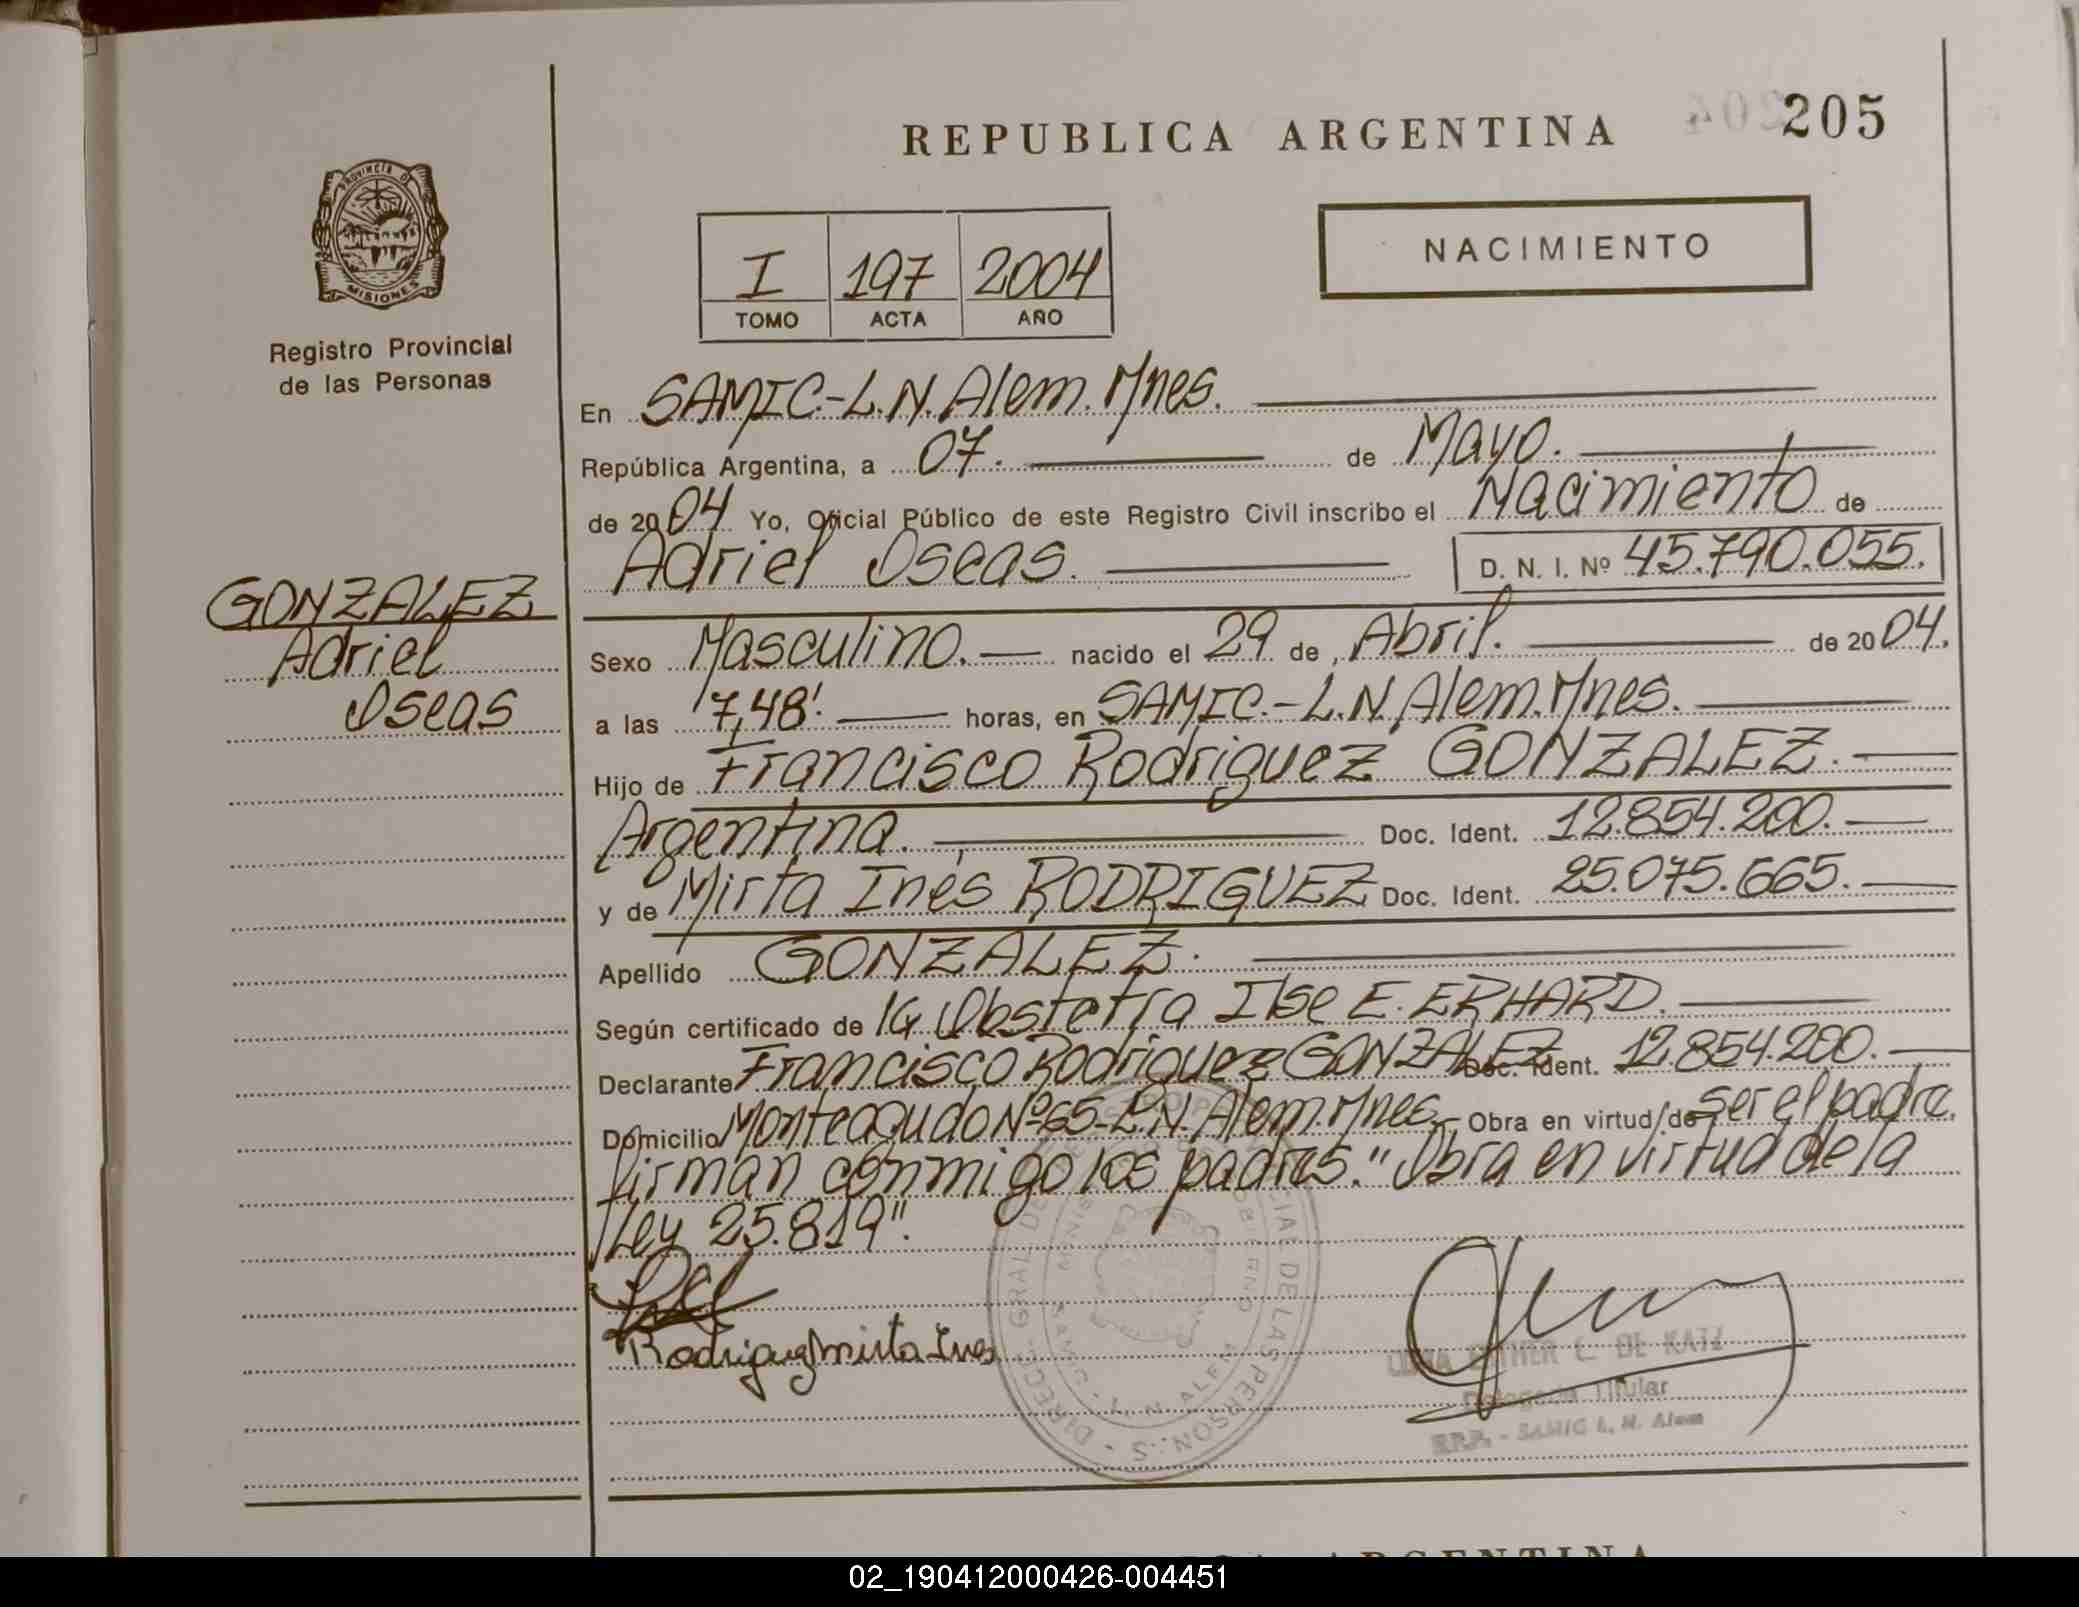 REPUBLICA ARGENTINA
205
PROVINCIA DE
MISIONES
Registro Provincial
de las Personas
I 197 2004
TOMO ACTA AÑO
NACIMIENTO
En SAMIC.-L.N.Alem.Mnes.
República Argentina, a 07. de Mayo.
de 2004 Yo, Oficial Público de este Registro Civil inscribo el Nacimiento de
Adriel Oseas. D. N. I. Nº 45.790.055.
GONZALEZ
Adriel
Oseas
Sexo Masculino. nacido el 29 de Abril. de 2004.
a las 7,48' horas, en SAMIC.-L.N.Alem.Mnes.
Hijo de Francisco Rodriguez GONZALEZ.
Argentina. Doc. Ident. 12.854.200.
y de Mirta Inés RODRIGUEZ Doc. Ident. 25.075.665.
Apellido GONZALEZ.
Según certificado de Obstetra Ilse E. ERHARD.
Declarante Francisco Rodriguez GONZALEZ Doc. Ident. 12.854.200.
Domicilio Monteagudo Nº65-L.N.Alem.Mnes. Obra en virtud de ser el padre.
firman conmigo los padres." Obra en virtud de la
Ley 25.819".
Rodriguez mirta Ines
ESTHER C. DE KATZ
Delegada Titular
R.P.P. - SAMIC L. N. Alem
SAMIC - L. N. ALEM
REPUBLICA ARGENTINA
02_190412000426-004451